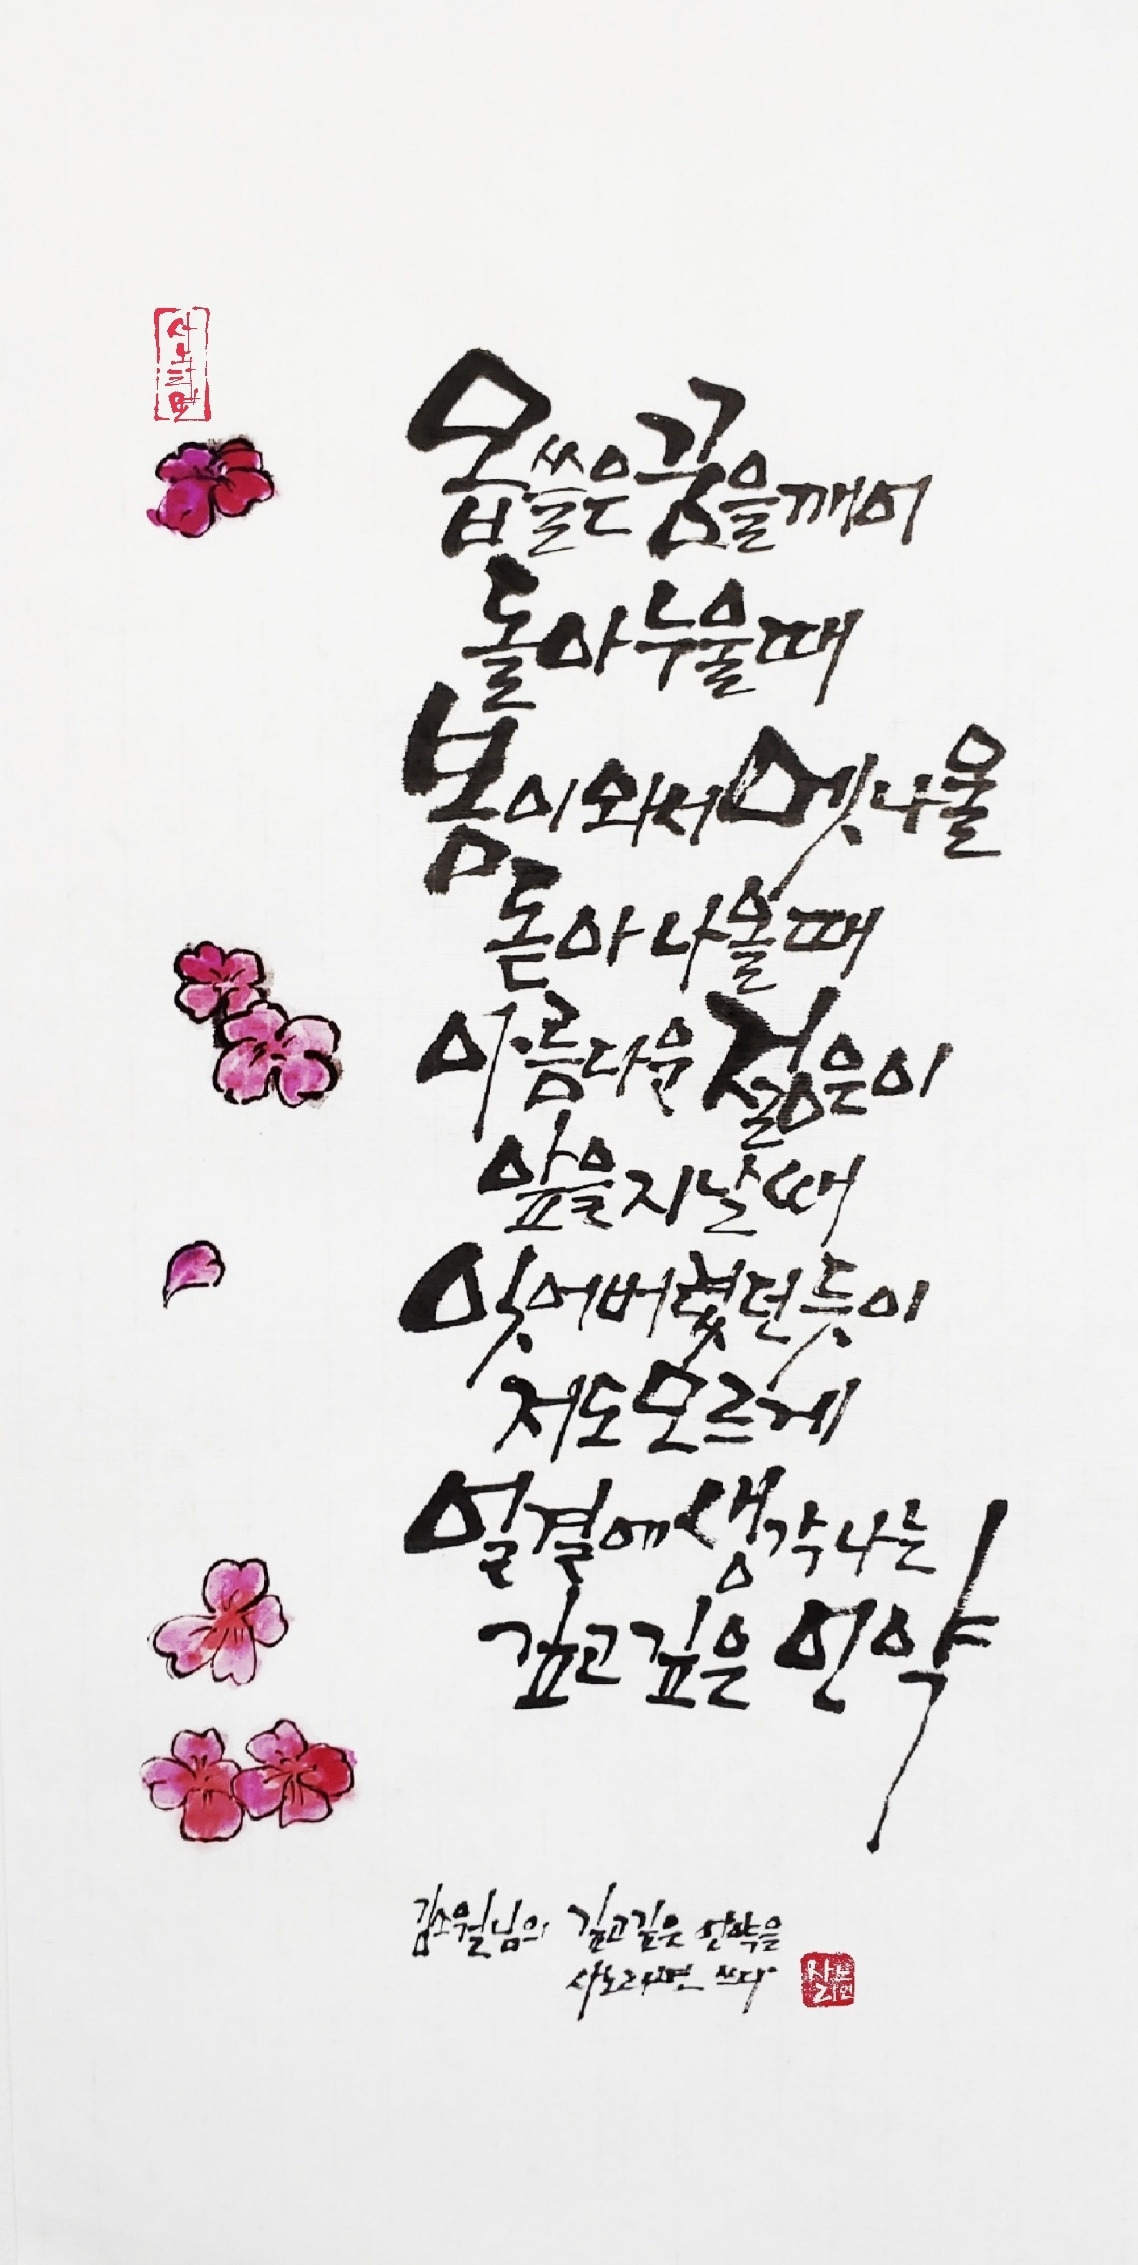 사노라면
몹쓸은 꿈을 깨어
돌아 누울 때
봄이 와서 멧나물
돋아 나올 때
아름다운 젊은이
앞을 지날 때
잊어버렸던 듯이
저도 모르게
얼결에 생각나는
깊고 깊은 언약
김소월님의 깊고 깊은 언약을
사노라면 쓰다